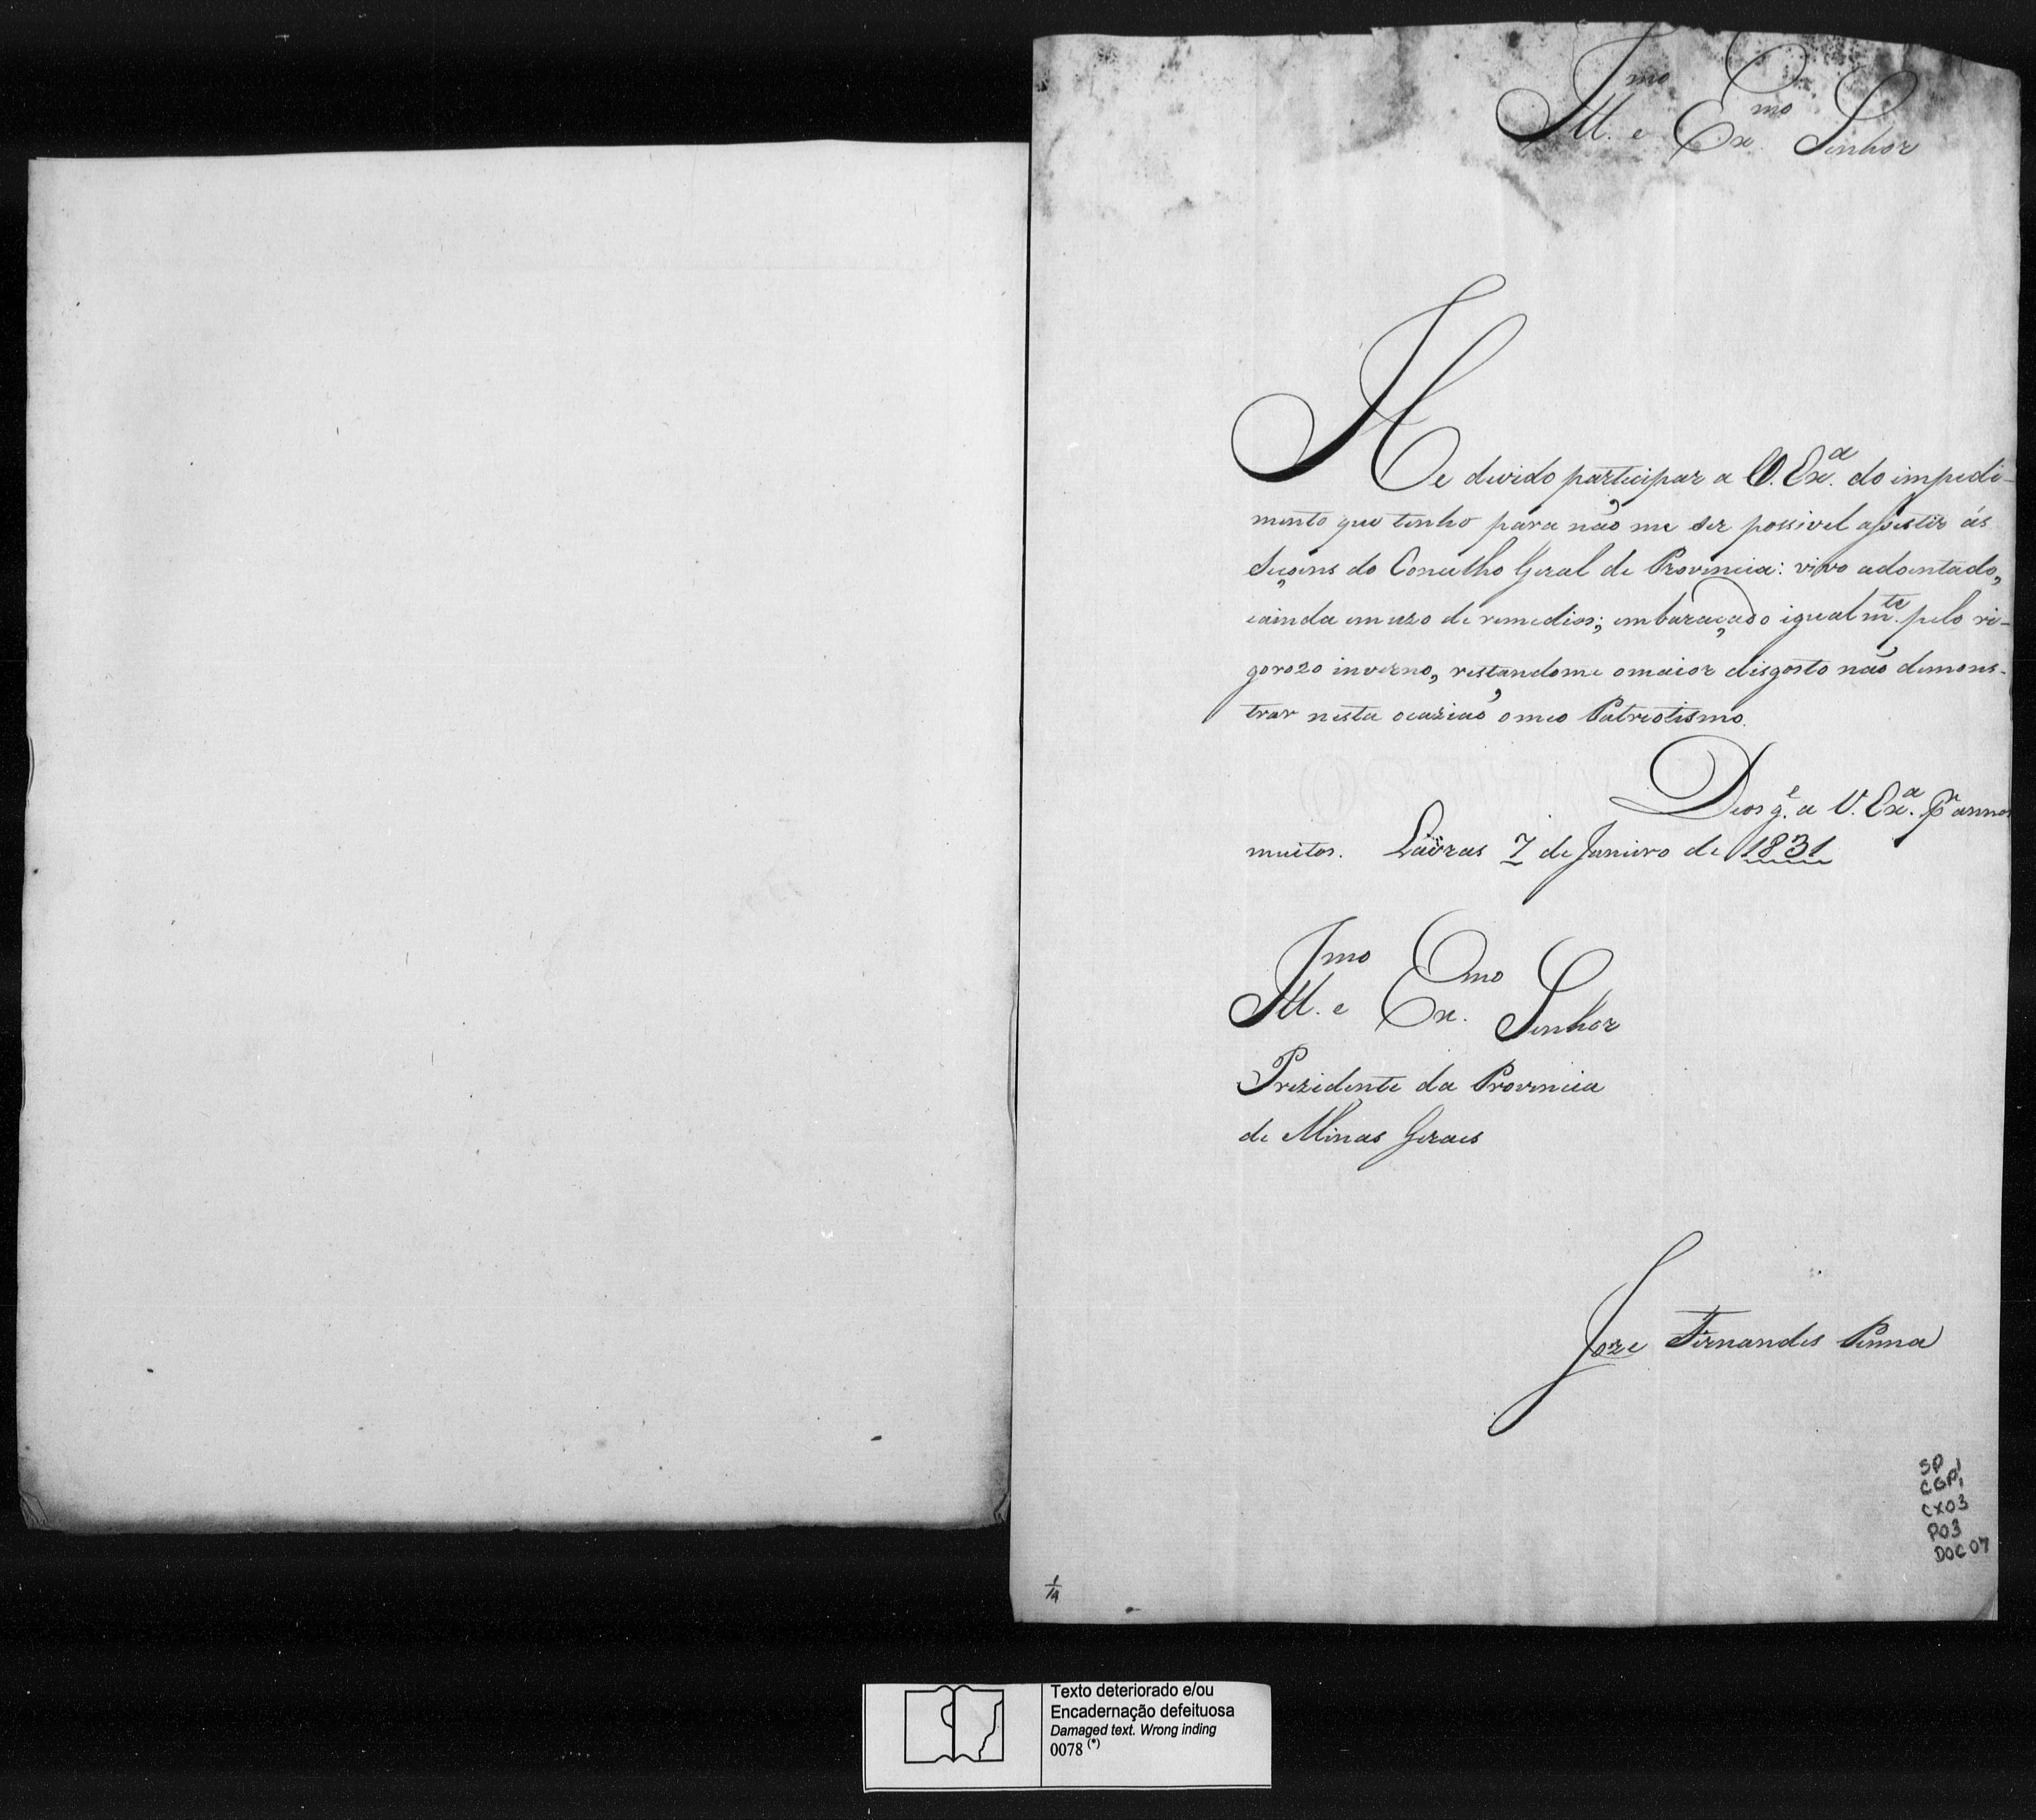 Ill.mo e Ex.mo Senhor
He devido participar a V. Ex.a do impedi-
mento que tenho para não me ser possivel assistir ás
Seçoens do Concelho Geral de Provincia: vivo adoentado,
eainda em uzo de remedios; embaraçado igualm.te pelo ri-
gorozo inverno, restandome omaior disgosto não demons-
trar nesta ocazião omeo Patriotismo.
Deos g.e a V. Ex.a p.r annos
muitos. Lavras 7 de Janeiro de 1831
Ill.mo e Ex.mo Senhor
Prezidente da Provincia
de Minas Geraes
Joze Fernandes Penna
SP
CGP1
CX03
P03
DOC 07
1/14
Texto deteriorado e/ou
Encadernação defeituosa
Damaged text. Wrong inding
0078 (*)